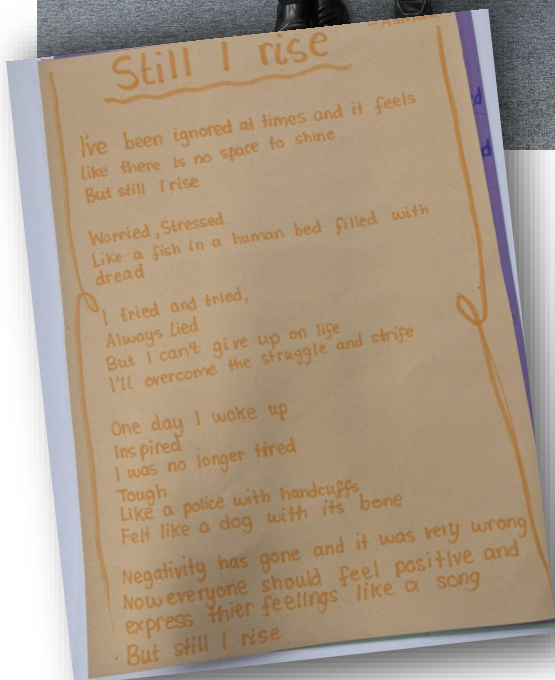 Still I rise
I've been ignored at times and it feels
like there is no space to shine
But still I rise
Worried, Stressed
Like a fish in a human bed filled with
dread
I tried and tried,
Always lied
But I can't give up on life
I'll overcome the struggle and strife
One day I woke up
Inspired
I was no longer tired
Tough
Like a police with handcuffs
Felt like a dog with its bone
Negativity has gone and it was very wrong
Now everyone should feel positive and
express thier feelings like a song
But still I rise